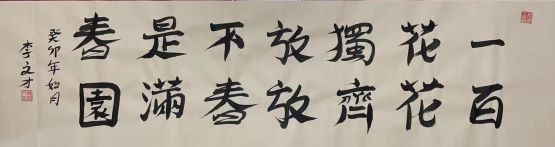 一花獨放不是春
百花齊放春滿園
癸卯年如月
李文才